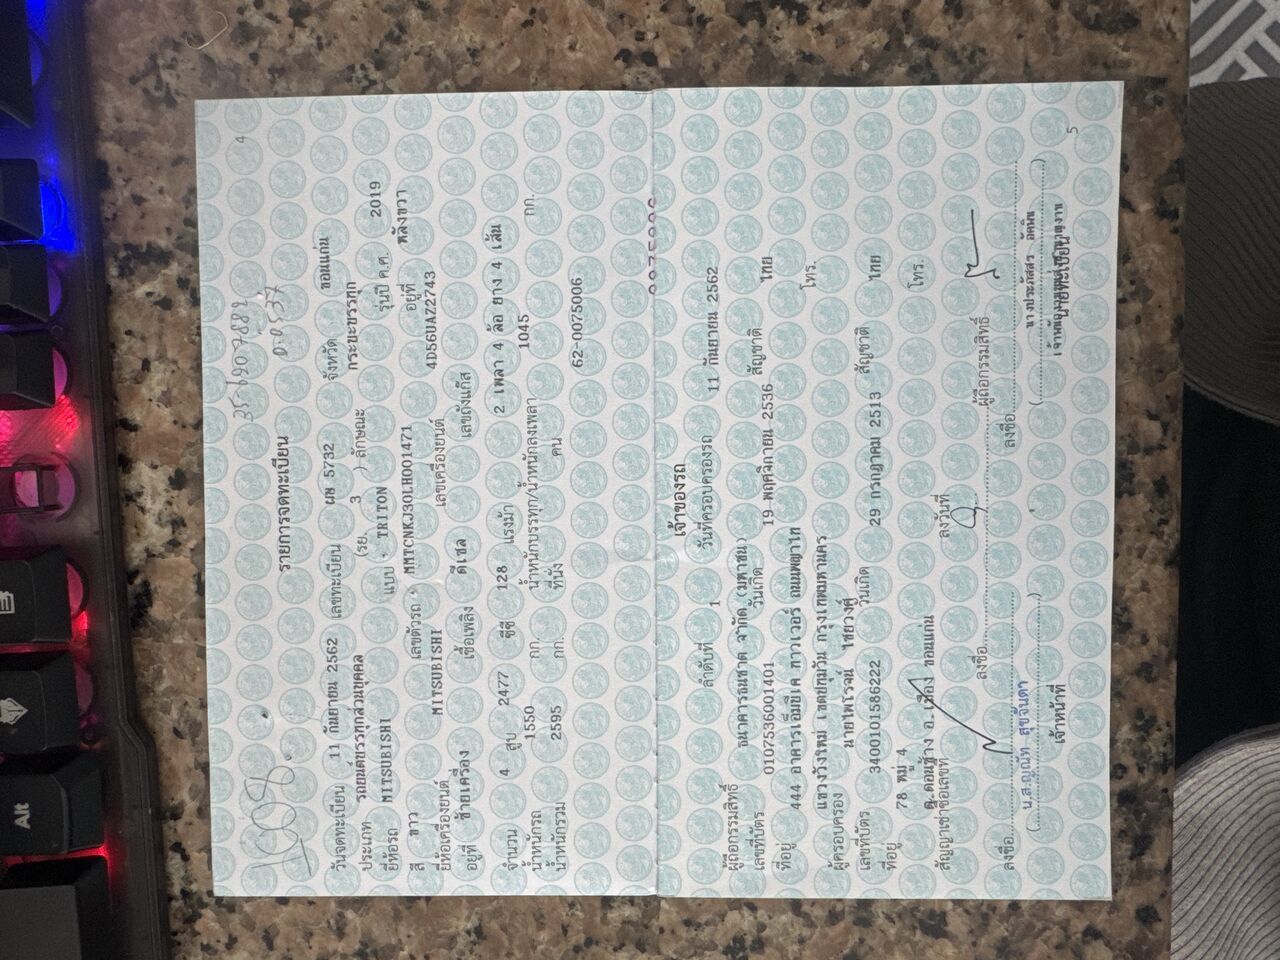 4
1608.
35 690 7882
00537
รายการจดทะเบียน
วันจดทะเบียน 11 กันยายน 2562 เลขทะเบียน ผษ 5732 จังหวัด ขอนแก่น
ประเภท รถยนต์บรรทุกส่วนบุคคล (รย. 3 ) ลักษณะ กระบะบรรทุก
ยี่ห้อรถ MITSUBISHI แบบ TRITON รุ่นปี ค.ศ. 2019
สี ขาว เลขตัวรถ MMTCNKJ30LH001471 อยู่ที่ หลังขวา
ยี่ห้อเครื่องยนต์ MITSUBISHI เลขเครื่องยนต์ 4D56UAZ2743
อยู่ที่ ซ้ายเครื่อง เชื้อเพลิง ดีเซล เลขถังแก๊ส
จำนวน 4 สูบ 2477 ซีซี 128 แรงม้า 2 เพลา 4 ล้อ ยาง 4 เส้น
น้ำหนักรถ 1550 กก. น้ำหนักบรรทุก/น้ำหนักลงเพลา 1045 กก.
น้ำหนักรวม 2595 กก. ที่นั่ง คน
62-0075006
เจ้าของรถ
ลำดับที่ 1 วันที่ครอบครองรถ 11 กันยายน 2562
ผู้ถือกรรมสิทธิ์ ธนาคารธนชาต จำกัด (มหาชน)
เลขที่บัตร 0107536001401 วันเกิด 19 พฤศจิกายน 2536 สัญชาติ ไทย
ที่อยู่ 444 อาคารเอ็มบีเค ทาวเวอร์ ถนนพญาไท โทร.
แขวงวังใหม่ เขตปทุมวัน กรุงเทพมหานคร
ผู้ครอบครอง นายไพโรจน์ ไชยวงค์
เลขที่บัตร 3400101586222 วันเกิด 29 กรกฎาคม 2513 สัญชาติ ไทย
ที่อยู่ 78 หมู่ 4 โทร.
ต.ดอนช้าง อ.เมือง ขอนแก่น
สัญญาเช่าซื้อเลขที่ ลงวันที่
ลงชื่อ ผู้ถือกรรมสิทธิ์
ลงชื่อ ลงชื่อ
น.ส.ญณัท สุขจันดา
( ) ( นางประภัสสร )
เจ้าหน้าที่ นายทะเบียน
5